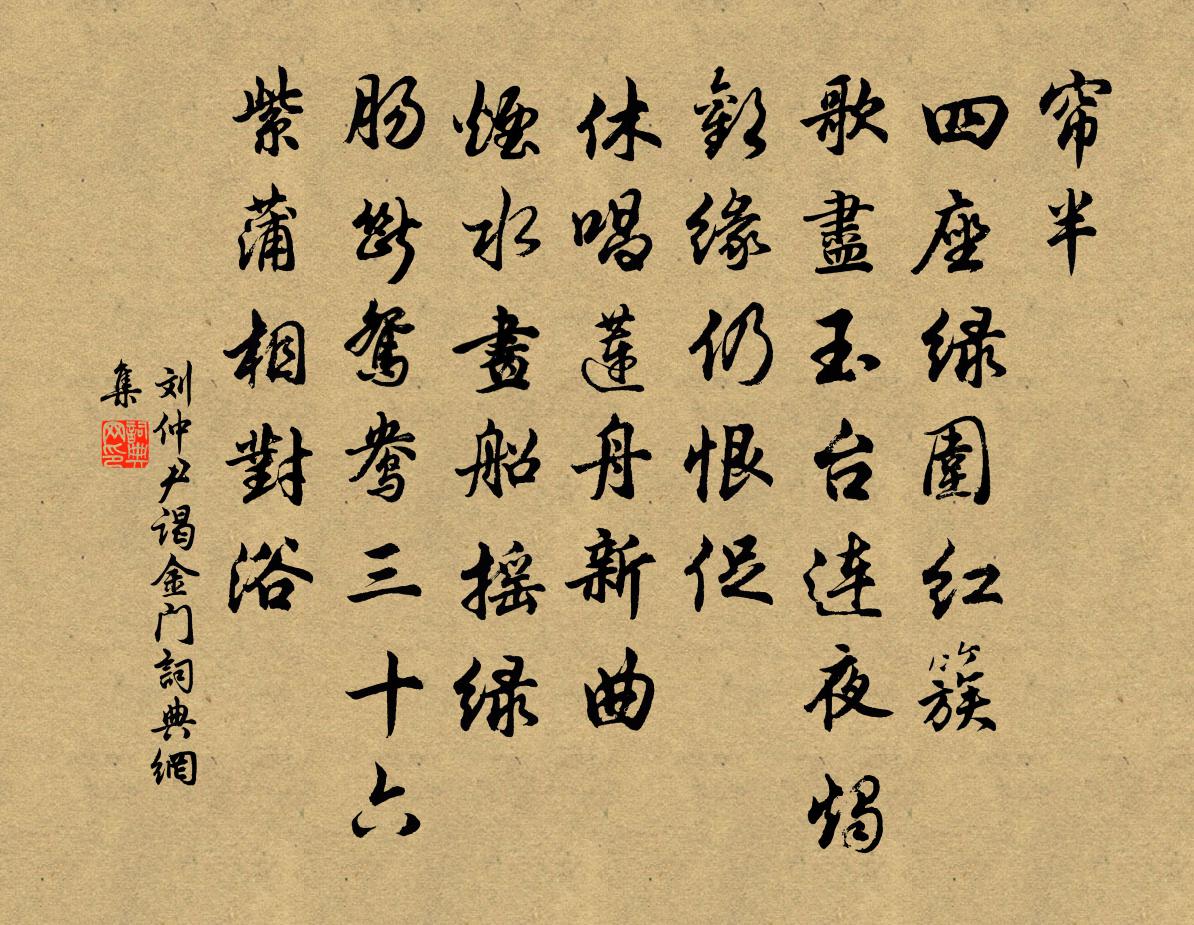 帘半
四座绿圍红簇
歌盡玉台连夜烛
歡缘仍恨促
休唱蓮舟新曲
烟水畫船摇绿
肠斷鸳鸯三十六
紫蒲相對浴
刘仲尹谒金门詞典網
集
詞典网印